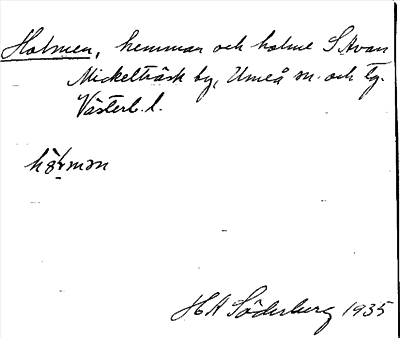 Holmen, hemman och holme S Avan
Mickelträsk by, Umeå sn. och tg.
Västerb. l.
hɔ̀lmɔn
H A Söderberg 1935